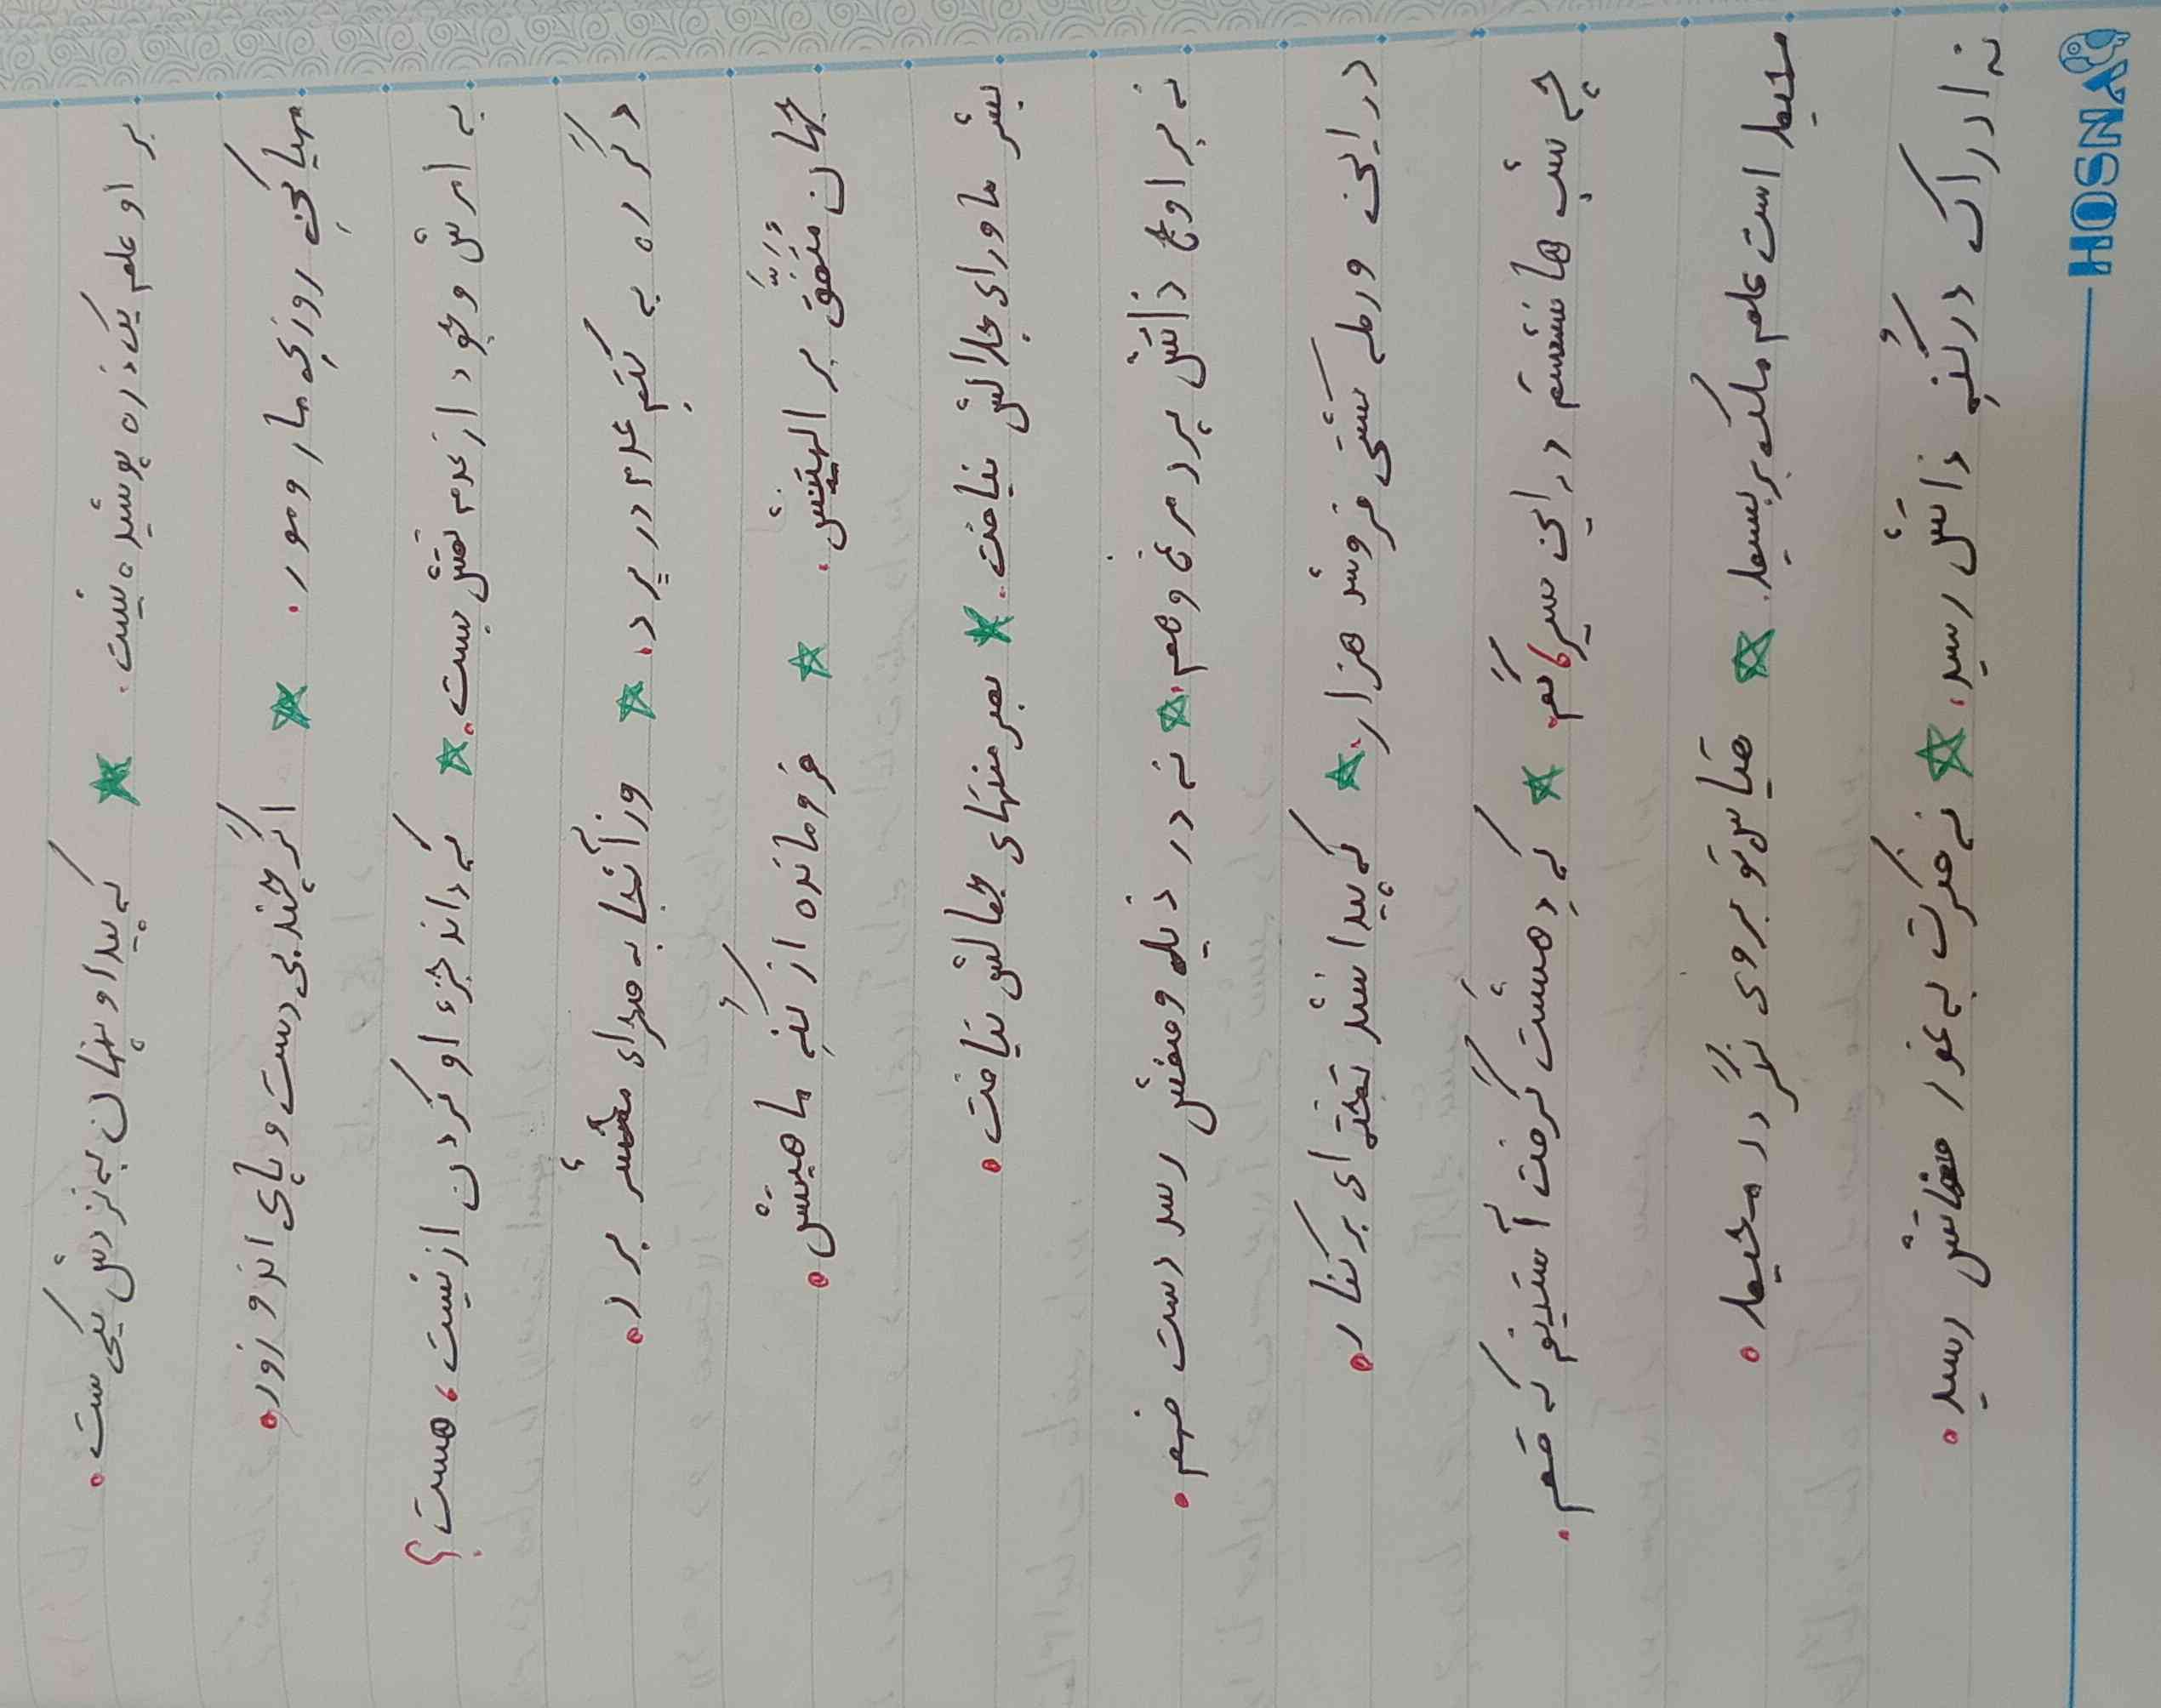 بر او علم یک ذره پوشیده نیست. ☆ که پیدا و پنهان به نزدش یکی ست.
مهیا کنِ روزیِ مار و مور. ☆ اگر چند بی دست و پای اند و زور.
به امرش وجود از عدم نقش بست. ☆ که داند جزء او کردن از نیست، هست؟
دگر ره به کتمِ عدم در برد. ☆ وز آنجا به صحرای محشر برد.
جهان مُتَّفَق بر الهیتش. ☆ فرومانده از کُنهِ ماهیتش.
بشر ماورای جلالش نیافت. ☆ بصر منتهای جمالش نیافت.
نه بر اوج ذاتش پرد مرغ وهم. ☆ نه در ذیل وصفش رسد دست فهم.
در این ورطه کشتی فروشد هزار. ☆ که پیدا نشد تخته ای بر کنار.
چه شب ها نشستم در این سیر، گم. ☆ که دِهشَت گرفت آستینم که قم.
محیط است علم ملک بر بسیط. ☆ قیاس تو بروی نگردد محیط.
نه ادراک در کُنهِ ذاتش رسید. ☆ نه فکرت به غور صفاتش رسید.
HOSNA